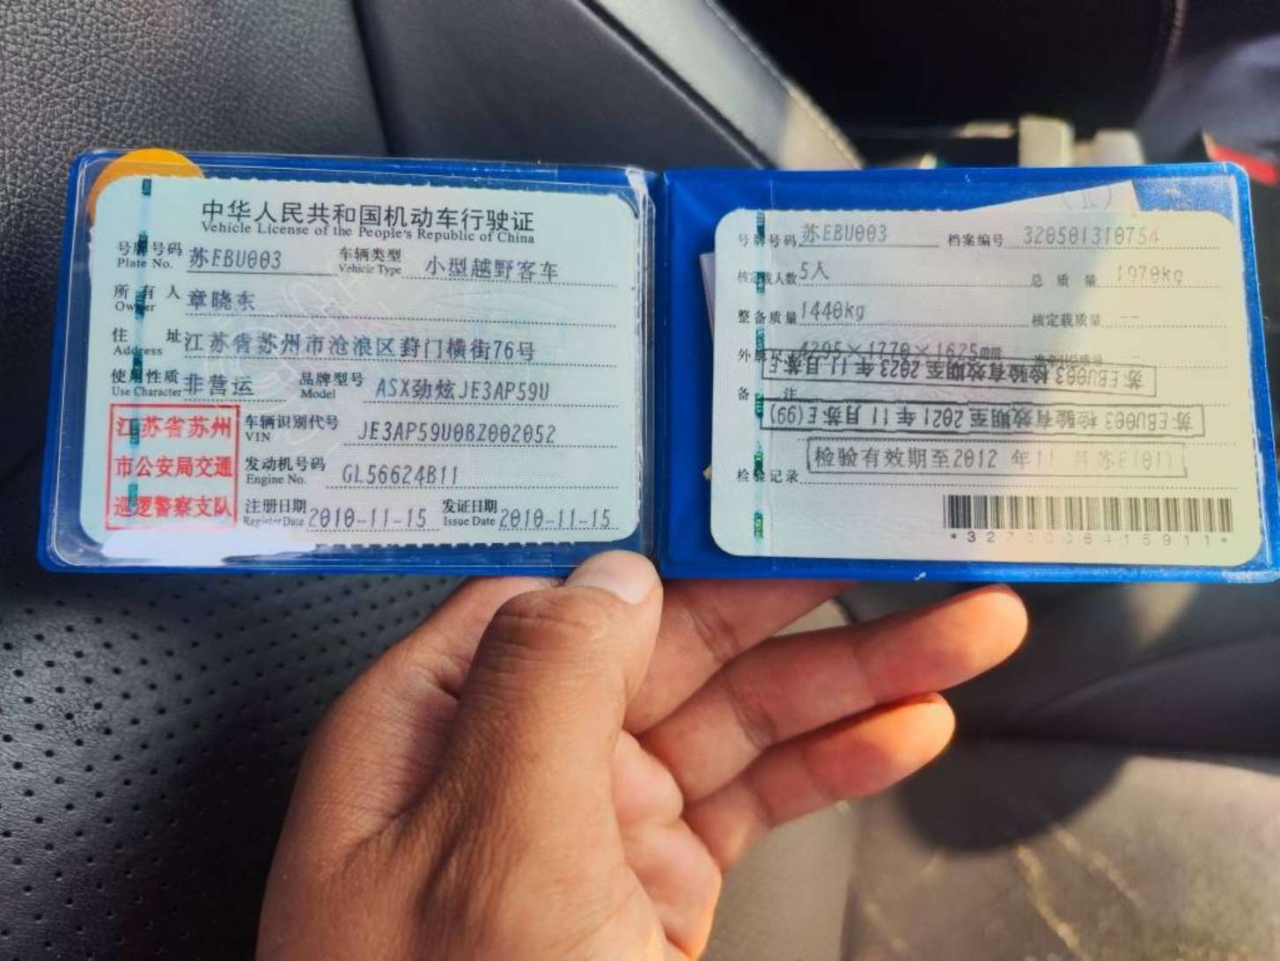 中华人民共和国机动车行驶证
Vehicle License of the People's Republic of China
号牌号码 苏EBU003 车辆类型 小型越野客车
Plate No. Vehicle Type
所有人 章晓东
Owner
住址 江苏省苏州市沧浪区葑门横街76号
Address
使用性质 非营运 品牌型号 ASX劲炫JE3AP59U
Use Character Model
江苏省苏州
市公安局交通
巡逻警察支队
车辆识别代号 JE3AP59U0BZ002052
VIN
发动机号码 GL56624B11
Engine No.
注册日期 2010-11-15 发证日期 2010-11-15
Register Date Issue Date
号牌号码 苏EBU003 档案编号 320501310754
核定载人数 5人 总质量 1970kg
整备质量 1440kg 核定载质量 --
外廓尺寸 4295×1770×1625mm
苏EBU003 检验有效期至2023年11月苏E
备注
苏EBU003 检验有效期至2021年11月苏E(99)
检验有效期至2012 年11 月苏E(01)
检验记录